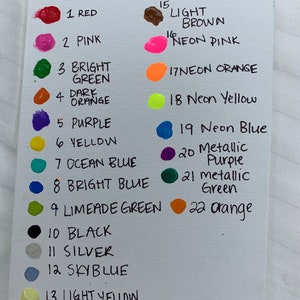 1 RED
2 PINK
3 BRIGHT
GREEN
4 DARK
ORANGE
5 PURPLE
6 YELLOW
7 OCEAN BLUE
8 BRIGHT BLUE
9 LIMEADE GREEN
10 BLACK
11 SILVER
12 SKYBLUE
13 LIGHT YELLOW
15 LIGHT
BROWN
16 NEON PINK
17 NEON ORANGE
18 Neon Yellow
19 Neon Blue
20 Metallic
Purple
21 metallic
Green
22 Orange